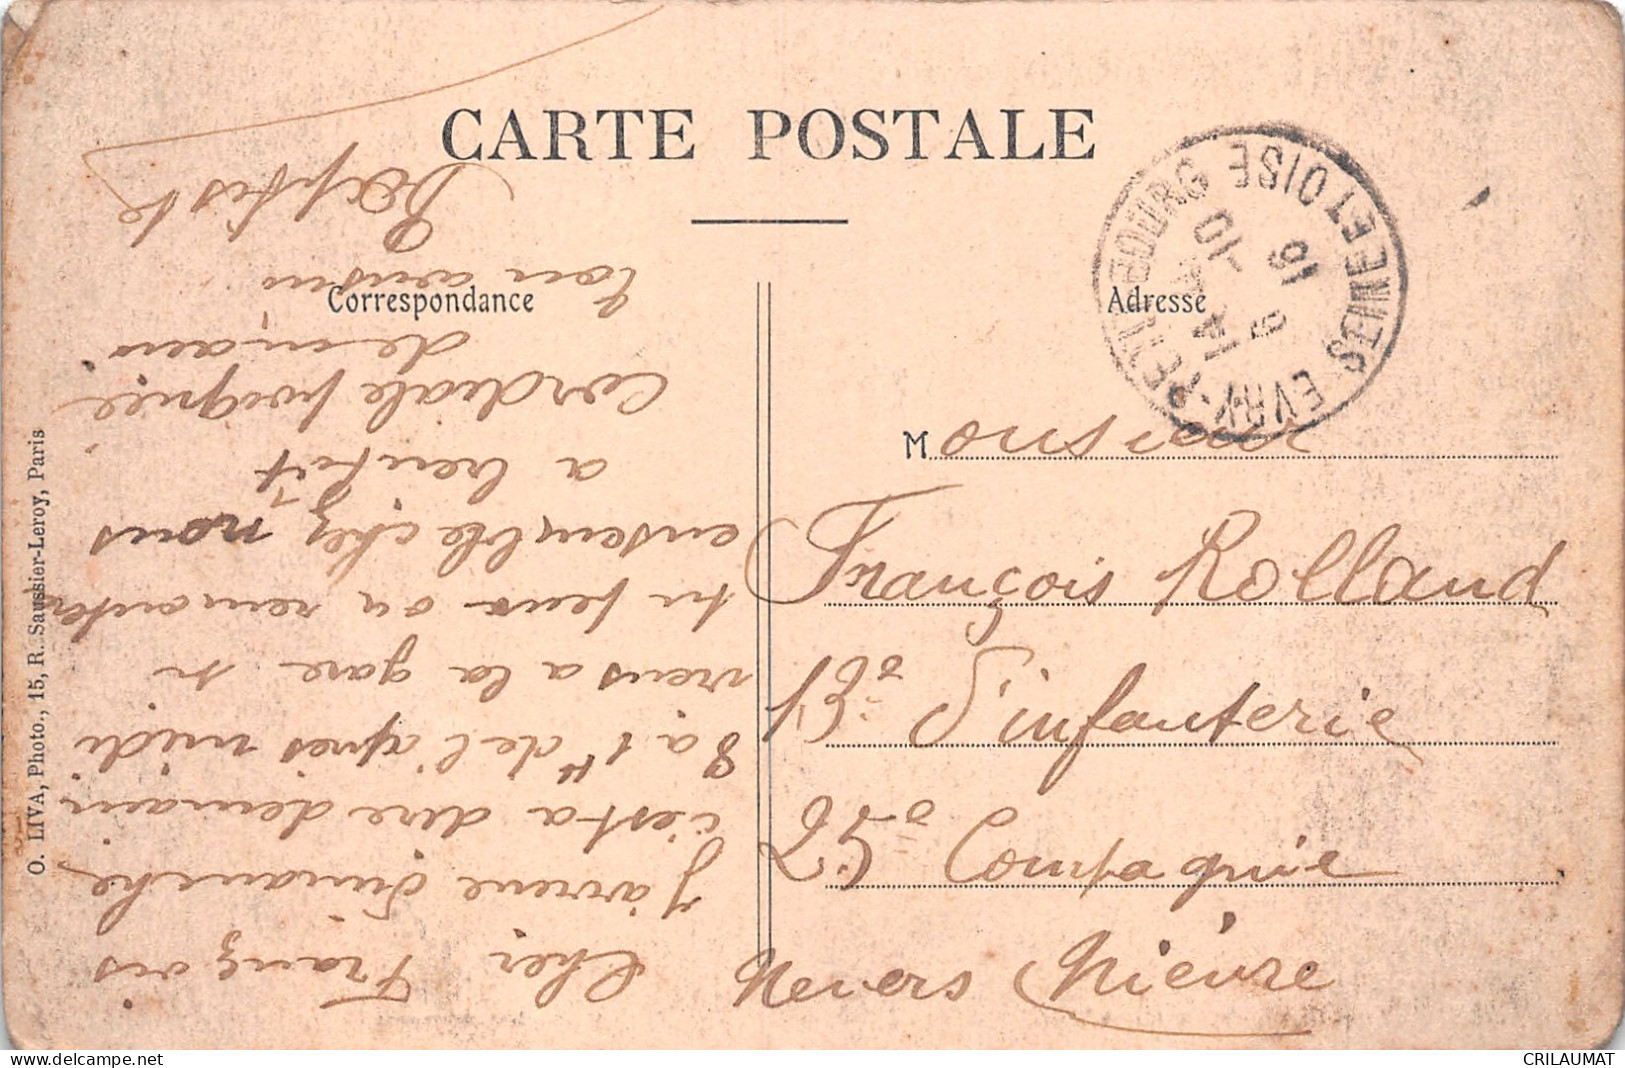 CARTE POSTALE
Correspondance
Adresse
EVRY-PETIT-BOURG SEINE ET OISE
14
16 -10
Monsieur
François Rolland
13e d'infanterie
25e Compagnie
Nevers Nièvre
Cher François
J'arrive dimanche
c'est a dire demain
8 a 1H de l'apres midi
viens a la gare si
tu peus on remontera
ensemble chez nous
a bientôt
Cordiale poignée
de main
Ton cousin
Baptiste
O. LIVA, Photo., 15, R. Saussier-Leroy, Paris
www.delcampe.net
CRILAUMAT